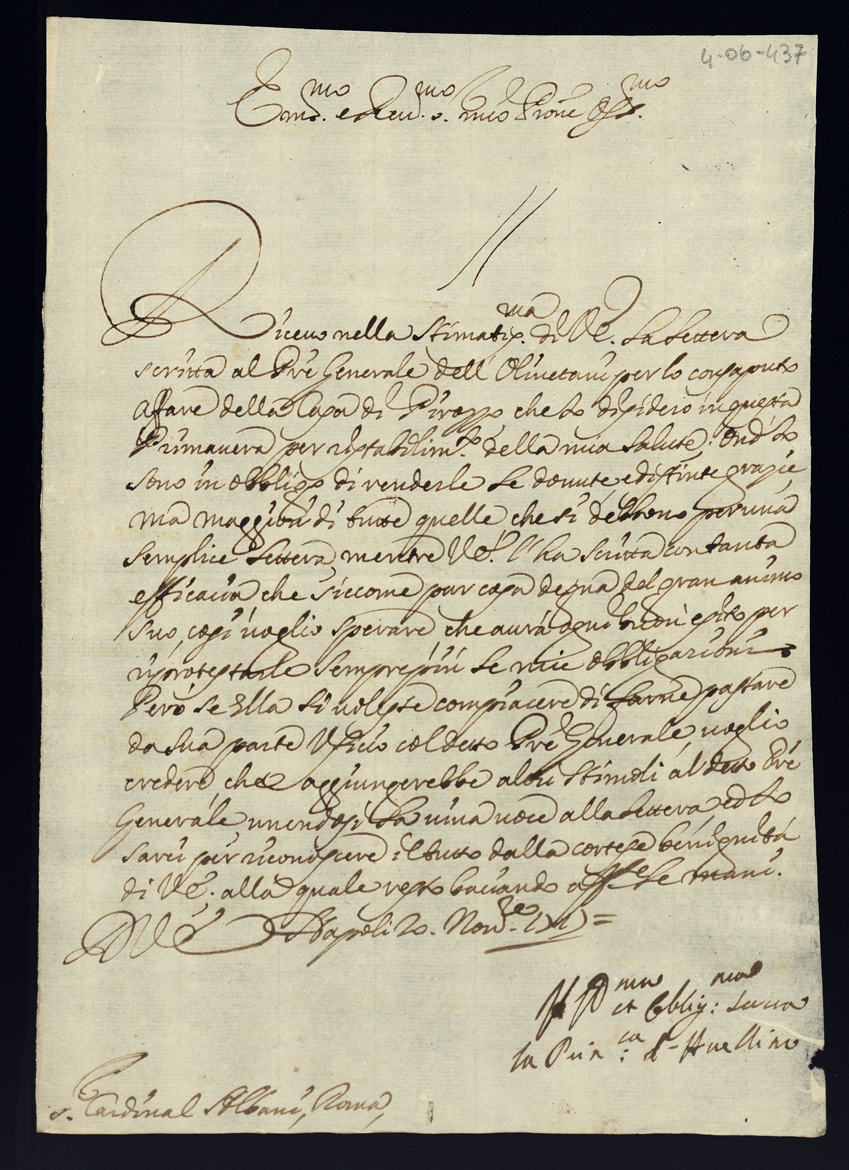 4-06-437
Em.mo e Reu.mo s. mio Prone Oss.mo
Riceuo nella stimatis.ma di VE. la lettera
scritta al Prē Generale dell Oliuetani per lo consaputo
affare della Casa di Pirozzo che Io desidero in questa
Primauera per ristabilim.to della mia salute; ond Io
sono in obbligo di renderle le douute, e distinte grazie,
ma maggiori di tutte quelle, che si debbono per una
semplice lettera, mentre VE. l'ha scritta con tanta
efficacia che siccome par cosa degna del gran animo
suo, così uoglio sperare che aurà ogni buon esito per
riprotestarle sempre più le mie obbligazioni
Però se Ella si uolesse compiacere di farne passare
da sua parte Uficio col detto Prē Generale, uoglio
credere, che aggiungerebbe altri stimoli al detto Prē
Generale unendosi la uiua uoce alla lettera, ed Io
sarei per riconoscere il tutto dalla cortese benignità
di VE. alla quale resto baciando aff.te le mani.
D VE Napoli 20. Nou.e
et Oblig.ma Serua
la Prin.ca d'Auellino
s. Cardinal Albani, Roma,